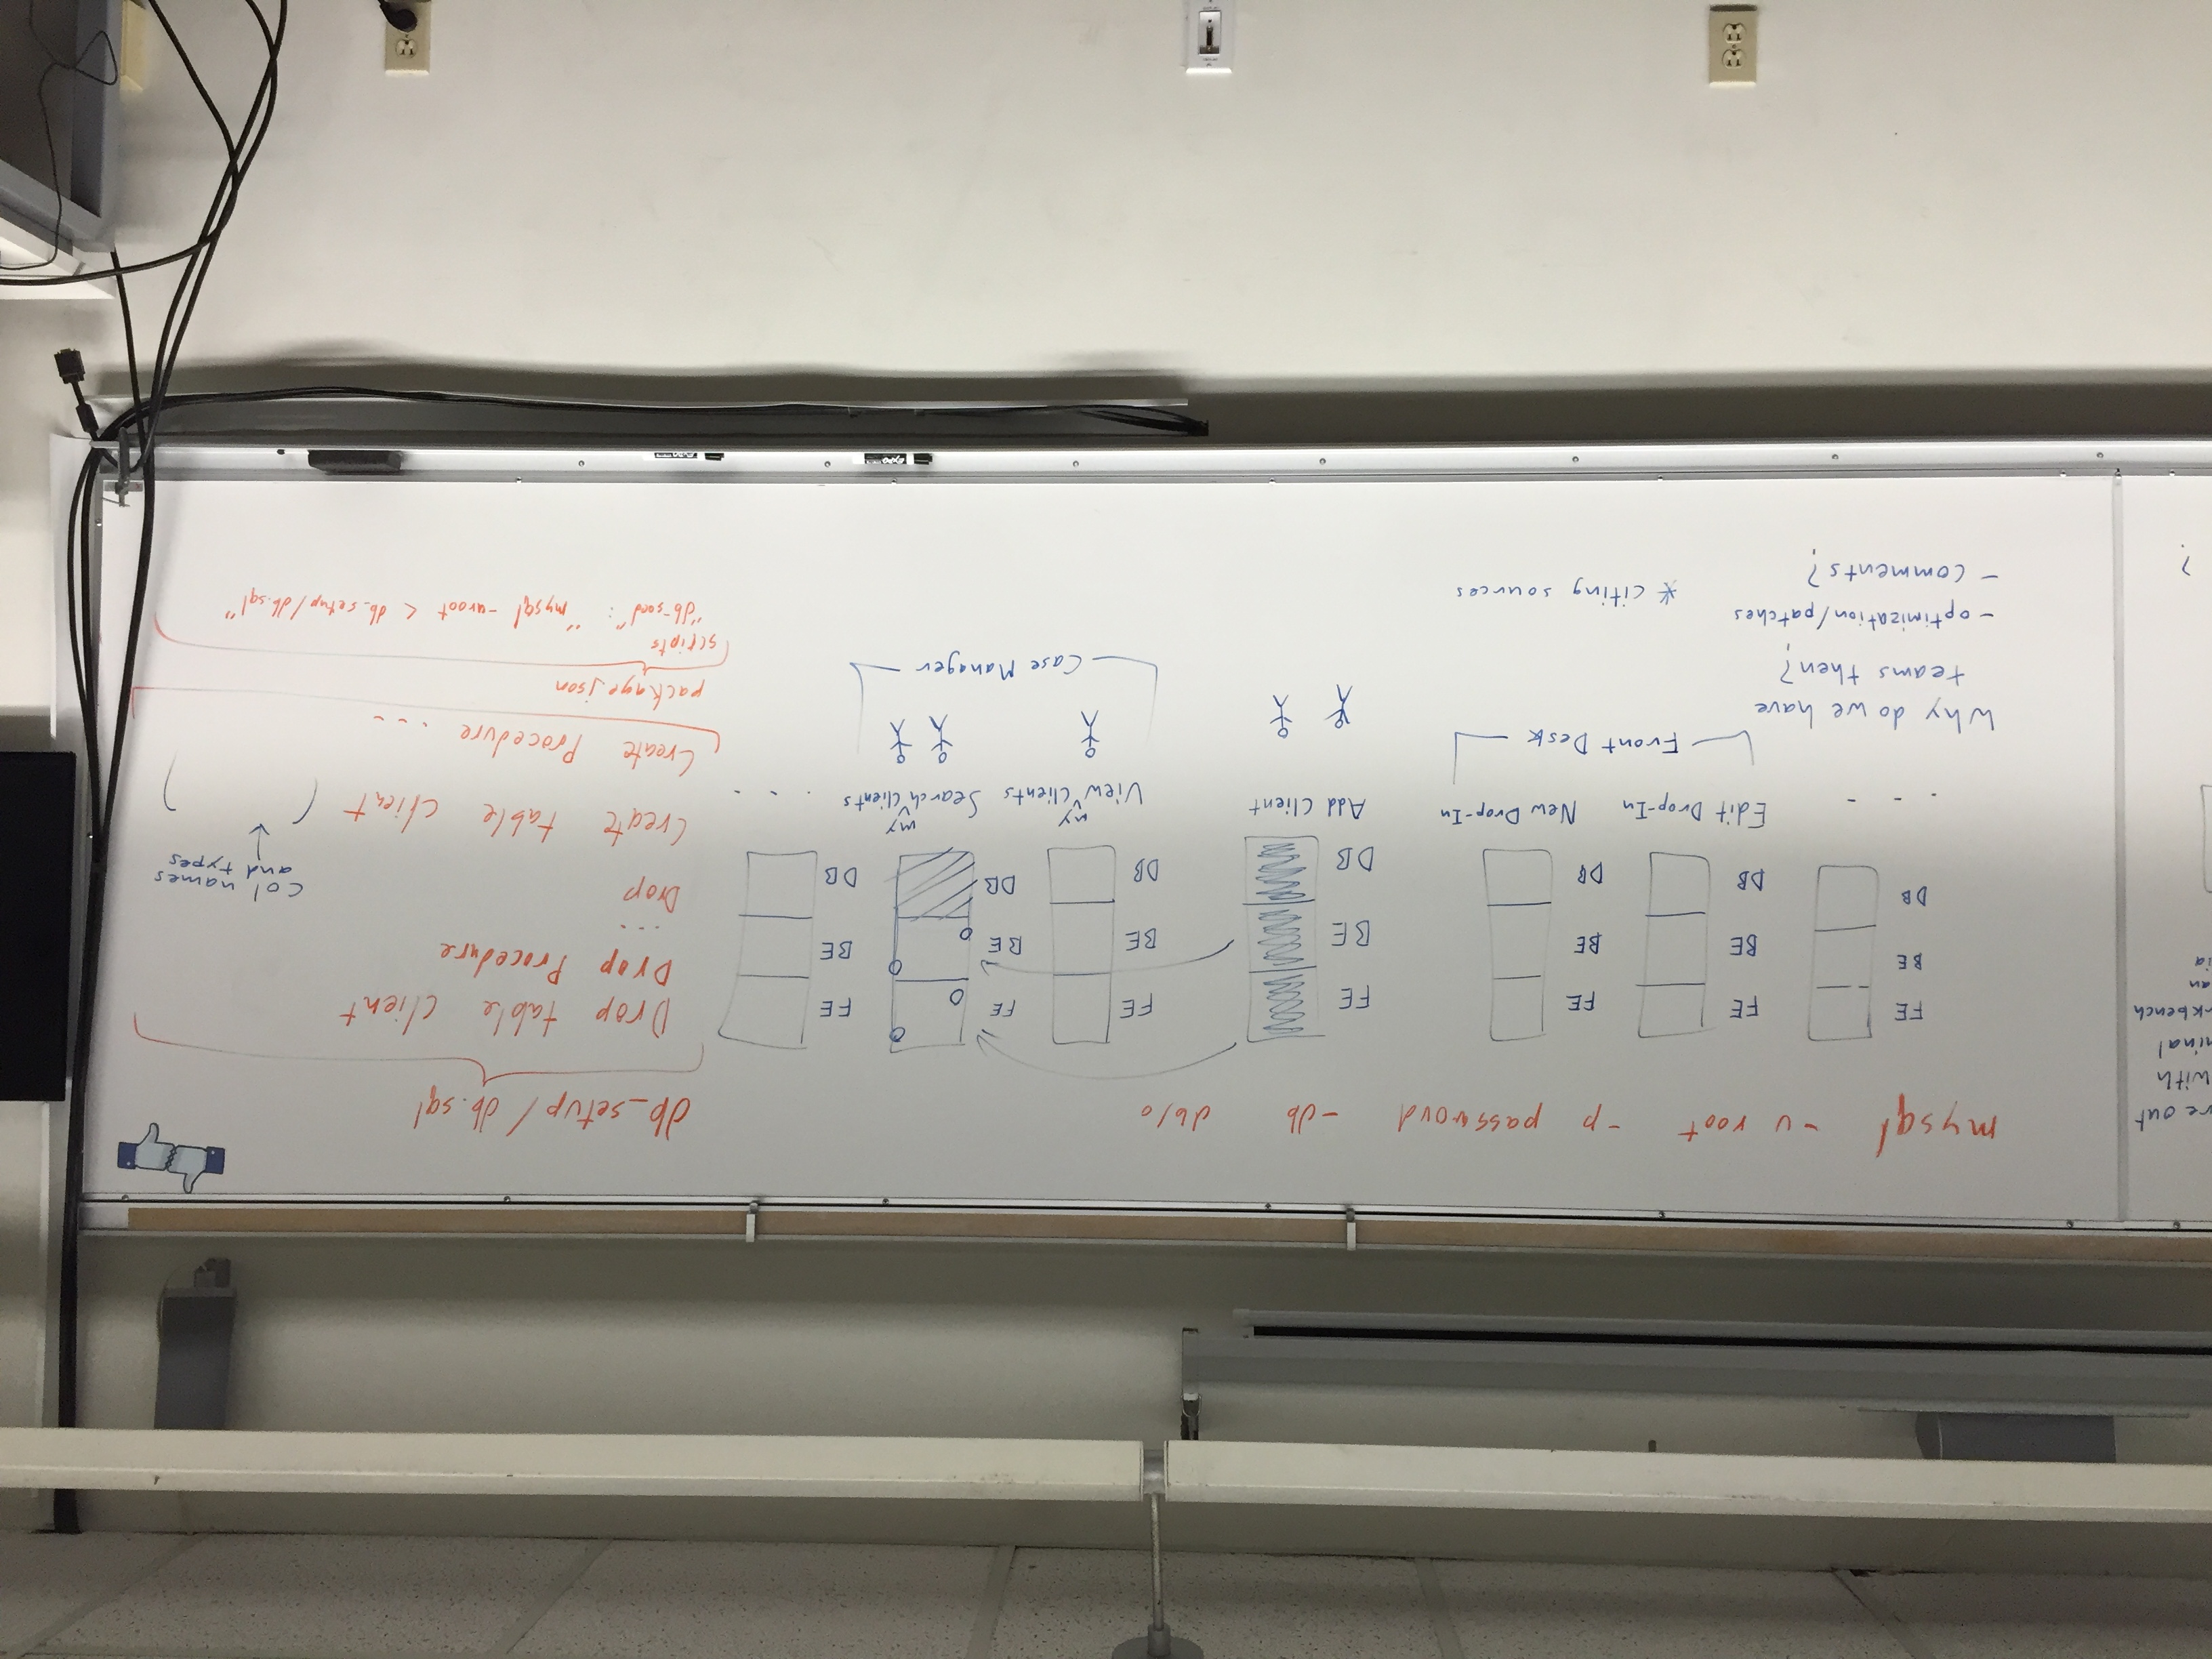 re out
with
minal
rkbench
an
ia
?
mysql -u root -p password -db db/o
FE FE FE FE FE FE FE
BE BE BE BE BE BE BE
DB DB DB DB DB DB DB
. . . Edit Drop-In New Drop-In Add Client View my Clients Search my Clients . . .
Front Desk
Case Manager
Why do we have
teams then?
- optimization/patches
- comments?
* citing sources
db_setup/db.sql
Drop table client
Drop Procedure
...
Drop
col names
and types
Create table client ( )
Create Procedure ...
package.json
scripts
"db-seed": "mysql -uroot < db_setup/db.sql"